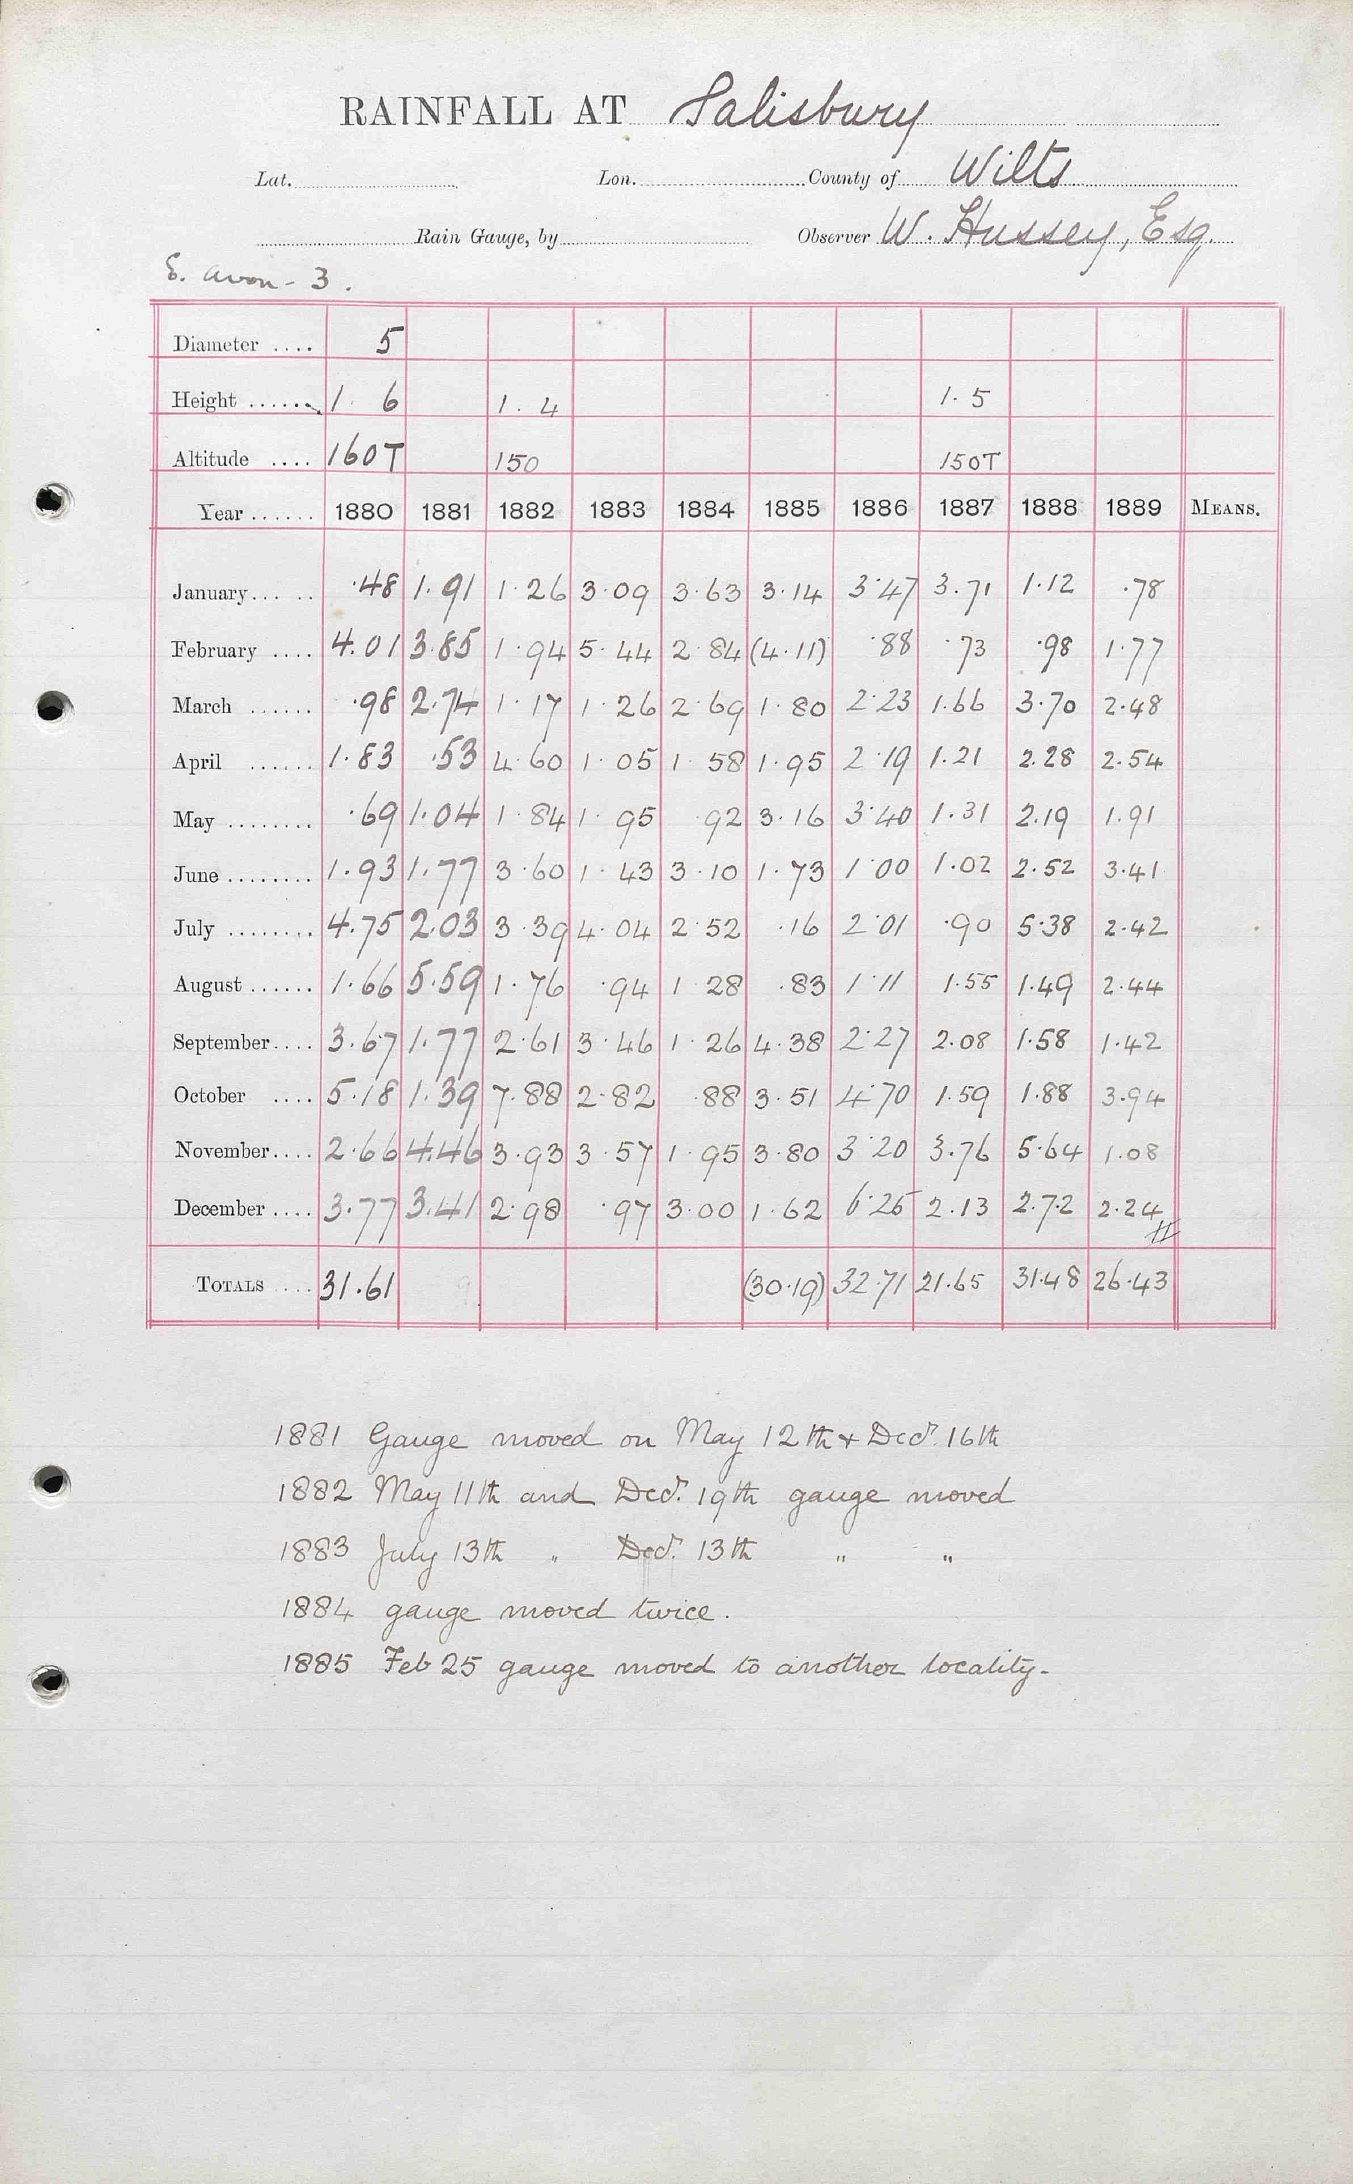 RAINFALL AT Salisbury
Lat. Lon. County of Wilts
Rain Gauge, by Observer W. Hussey, Esq.
E. Avon - 3.
Diameter .... 5
Height ...... 1. 6 1. 4 1. 5
Altitude .... 160T 150 150T
Year ...... 1880 1881 1882 1883 1884 1885 1886 1887 1888 1889 MEANS.
January... .. .48 1.91 1.26 3.09 3.63 3.14 3.47 3.71 1.12 .78
February .... 4.01 3.85 1.94 5.44 2.84 (4.11) .88 .73 .98 1.77
March ...... .98 2.74 1.17 1.26 2.69 1.80 2.23 1.66 3.70 2.48
April ...... 1.83 .53 4.60 1.05 1.58 1.95 2.19 1.21 2.28 2.54
May ........ .69 1.04 1.84 1.95 .92 3.16 3.40 1.31 2.19 1.91
June ........ 1.93 1.77 3.60 1.43 3.10 1.73 1.00 1.02 2.52 3.41
July ........ 4.75 2.03 3.39 4.04 2.52 .16 2.01 .90 5.38 2.42
August ...... 1.66 5.59 1.76 .94 1.28 .83 1.11 1.55 1.49 2.44
September.... 3.67 1.77 2.61 3.46 1.26 4.38 2.27 2.08 1.58 1.42
October .... 5.18 1.39 7.88 2.82 .88 3.51 4.70 1.59 1.88 3.94
November.... 2.66 4.46 3.93 3.57 1.95 3.80 3.20 3.76 5.64 1.08
December .... 3.77 3.41 2.98 .97 3.00 1.62 6.25 2.13 2.72 2.24
TOTALS .... 31.61 (30.19) 32.71 21.65 31.48 26.43
1881 Gauge moved on May 12th + Decr. 16th
1882 May 11th and Decr. 19th gauge moved
1883 July 13th " Decr. 13th " "
1884 gauge moved twice.
1885 Feb 25 gauge moved to another locality.